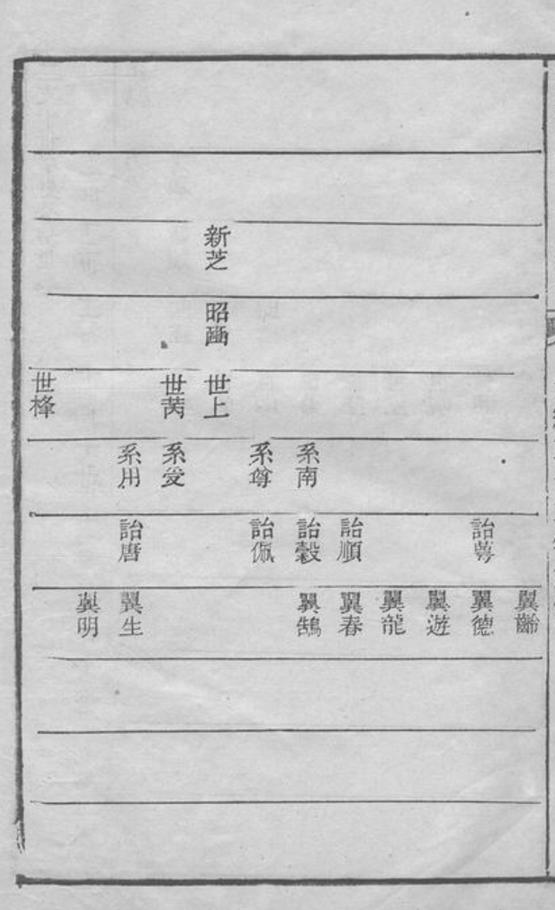 新芝
昭凾
世上
世芮
世桻
系南
系尊
系爻
系用
詒蕚
詒順
詒穀
詒佩
詒唐
翼齡
翼德
翼遊
翼龍
翼春
翼鵠
翼生
翼明